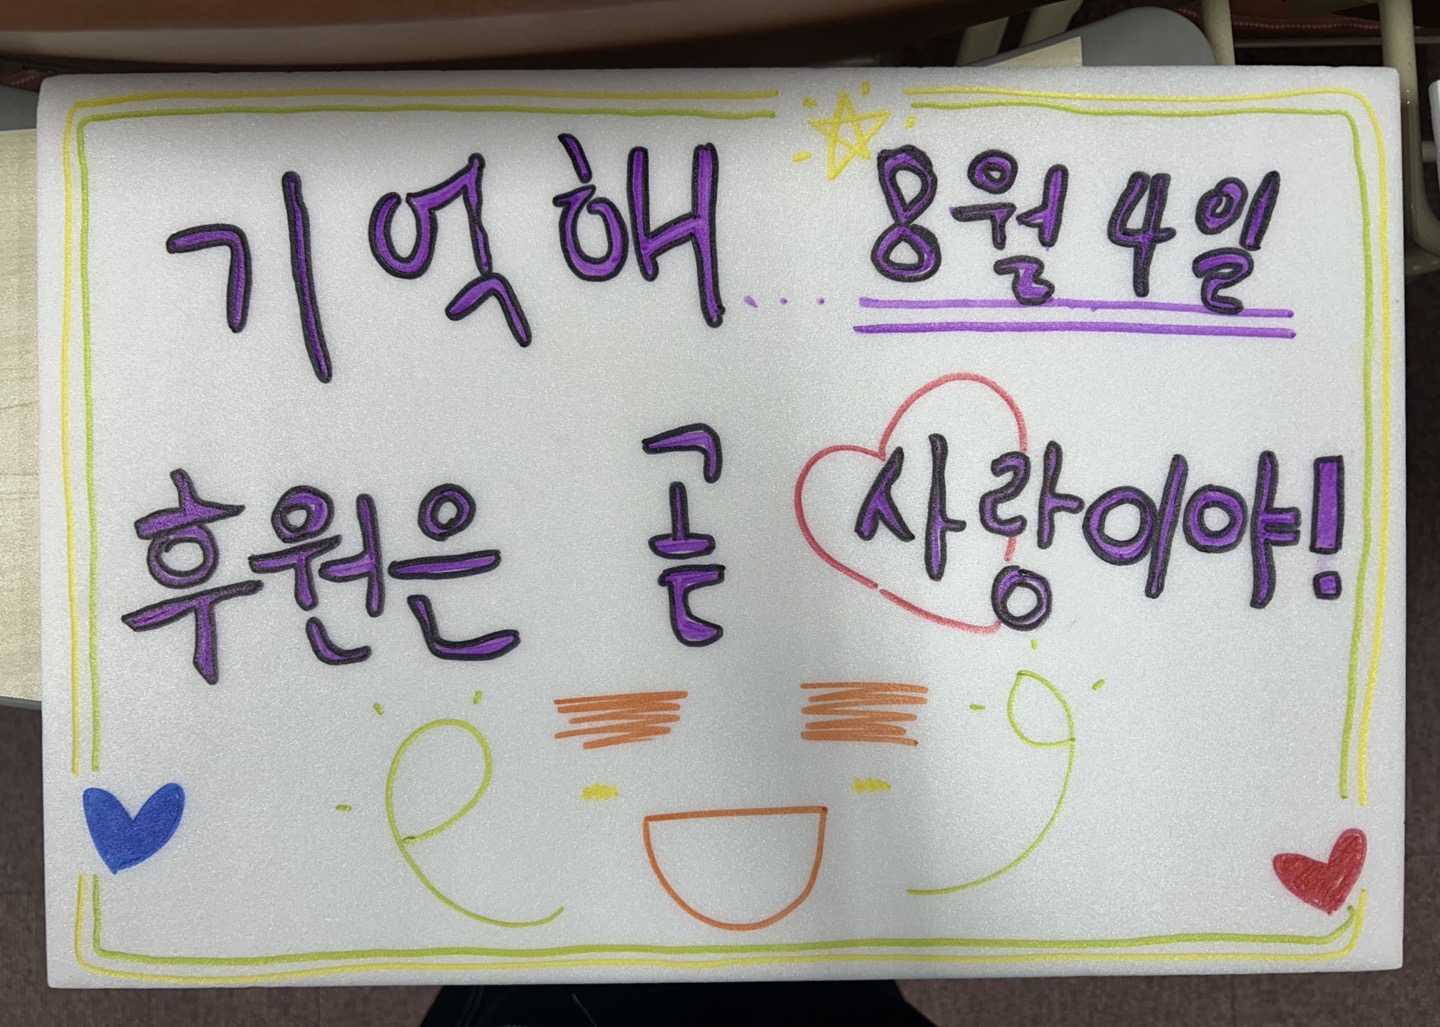 기억해... 8월 4일
후원은 곧 사랑이야!